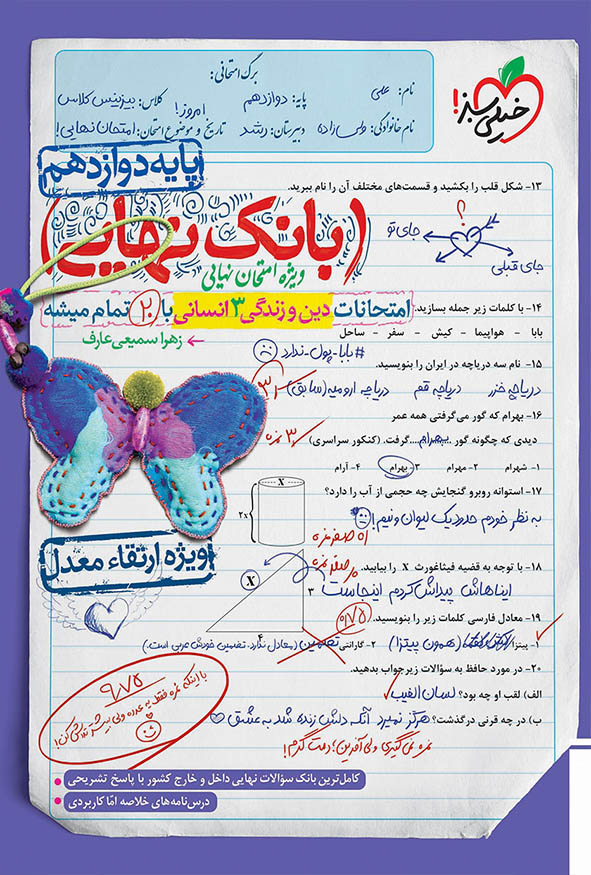 خیلی سبز!
برگ امتحانی:
نام: علی
پایه: دوازدهم
کلاس: بیزینس کلاس
نام خانوادگی: ولی زاده
دبیرستان: رشد
تاریخ و موضوع امتحان: امروز! امتحان نهایی!
پایه دوازدهم
(بانک نهایی)
ویژه امتحان نهایی
امتحانات دین و زندگی ۳ انسانی با ۲۰ تمام میشه
زهرا سمیعی عارف
۱۳- شکل قلب را بکشید و قسمت‌های مختلف آن را نام ببرید.
؟
جای تو
جای قبلی
۱۴- با کلمات زیر جمله بسازید.
بابا - هواپیما - کیش - سفر - ساحل
#بابا-پول-ندارد
۱۵- نام سه دریاچه در ایران را بنویسید.
دریاچه خزر دریاچه قم دریاچه ارومیه (سابق)
۱۶- بهرام که گور می‌گرفتی همه عمر
دیدی که چگونه گور ..بهرام.. گرفت. (کنکور سراسری)
۳ نمره
۱- شهرام ۲- مهرام ۳- بهرام ۴- آرام
۱۷- استوانه روبرو گنجایش چه حجمی از آب را دارد؟
X
2X
به نظر خودم حدود یک لیوان و نیم!
صفر نمره
۱۸- با توجه به قضیه فیثاغورث X را بیابید.
صفر نمره
X
۳
۴
ایناهاش پیداش کردم اینجاست
۱۹- معادل فارسی کلمات زیر را بنویسید.
۰/۷۵
۱- پیتزا (همون پیتزا)
۲- گارانتی تضمین (معادل ندارد. تضمین خودش عربی است.)
۲۰- در مورد حافظ به سؤالات زیر جواب بدهید.
الف) لقب او چه بود؟ لسان الغیب
ب) در چه قرنی درگذشت؟ هرگز نمیرد آنکه دلش زنده شد به عشق
نمره نمی‌گیری ولی آفرین؛ دمت گرم!
ویژه ارتقاء معدل
۹/۷۵
با اینکه نمره فقط یه عدده ولی بیشتر تلاش کن!
کامل‌ترین بانک سؤالات نهایی داخل و خارج کشور با پاسخ تشریحی
درس‌نامه‌های خلاصه امّا کاربردی